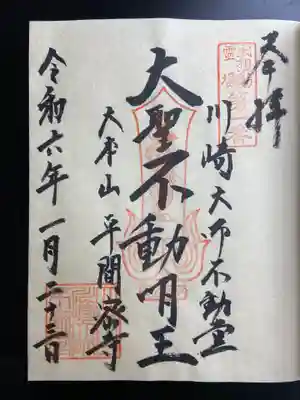 奉拝
川崎大師不動堂
大聖不動明王
大本山 平間寺
令和六年一月二十三日